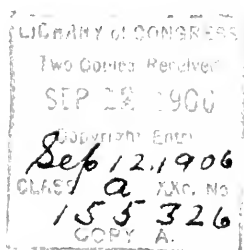 LIBRARY of CONGRESS
Two Copies Received
SEP 1906
Copyright Entry
Sep 12, 1906
CLASS a XXc. No
155326
COPY A.